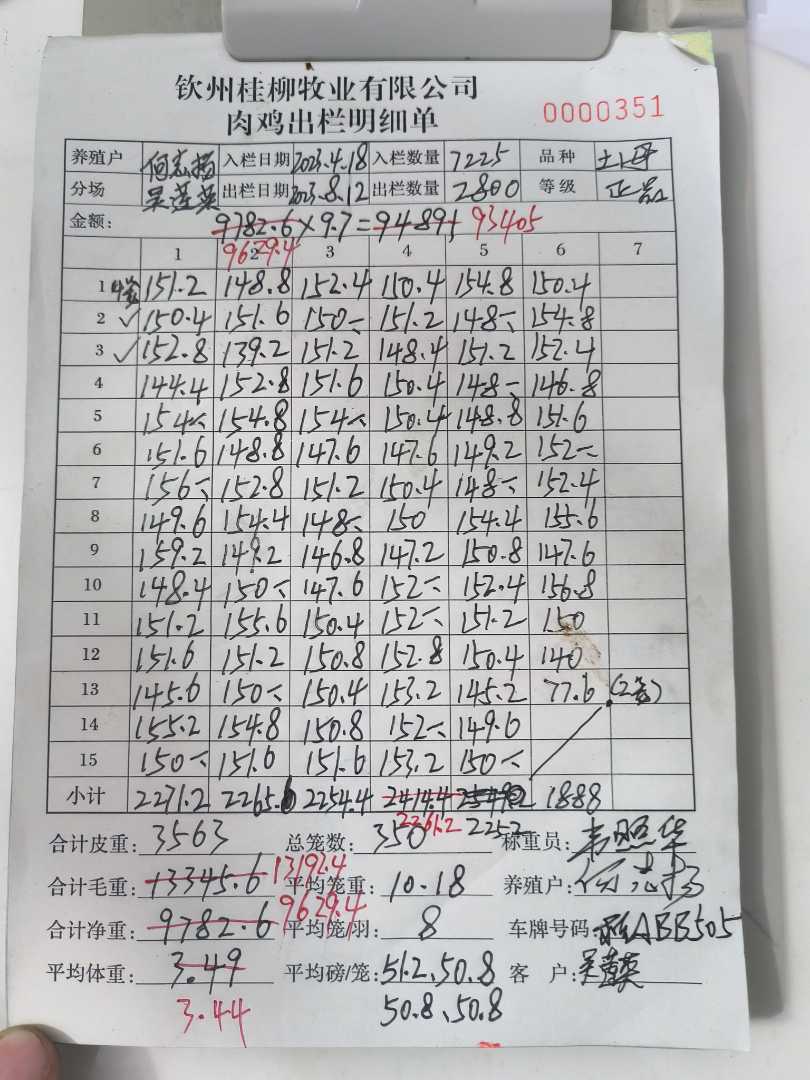 钦州桂柳牧业有限公司
肉鸡出栏明细单 0000351
养殖户 何志扬 入栏日期 2023.4.18 入栏数量 7225 品种 土丹
分场 吴莲英 出栏日期 2023.8.12 出栏数量 2800 等级 正品
金额: 9782.6×9.7=94891 93405
9629.4
1 2 3 4 5 6 7
1 4笼 151.2 148.8 152.4 150.4 154.8 150.4
2 ✓ 150.4 151.6 150- 151.2 148- 154.8
3 ✓ 152.8 139.2 151.2 148.4 151.2 152.4
4 144.4 152.8 151.6 150.4 148- 146.8
5 154- 154.8 154- 150.4 148.8 151.6
6 151.6 148.8 147.6 147.6 149.2 152-
7 156- 152.8 151.2 150.4 148- 152.4
8 149.6 154.4 148- 150 154.4 155.6
9 159.2 149.2 146.8 147.2 150.8 147.6
10 148.4 150- 147.6 152- 152.4 156.8
11 151.2 155.6 150.4 152- 151.2 150
12 151.6 151.2 150.8 152.8 150.4 140
13 145.6 150- 150.4 153.2 145.2 77.6 (2笼)
14 155.2 154.8 150.8 152- 149.6
15 150- 151.6 151.6 153.2 150-
小计 2271.2 2265.6 2254.4 2414.4 1888
2261.2 2252
合计皮重: 3563 总笼数: 350 称重员: 韦照华
合计毛重: 13345.6 13192.4 平均笼重: 10.18 养殖户: 何志扬
合计净重: 9782.6 9629.4 平均笼/羽: 8 车牌号码: ABB505
平均体重: 3.49 平均磅/笼: 51.2、50.8 客 户: 吴莲英
3.44 50.8、50.8